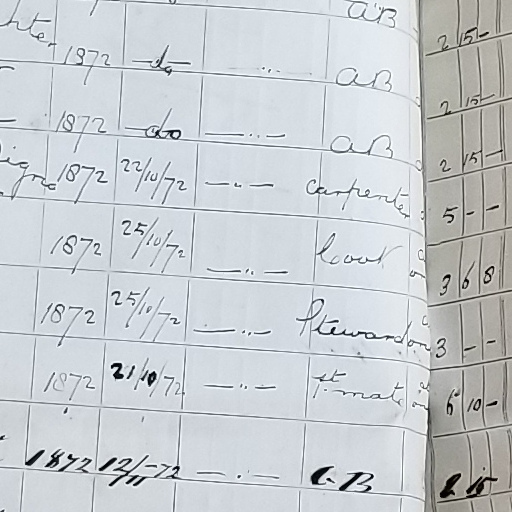 AB 2 15 -
1872 do —..— AB 2 15 -
1872 do —..— AB 2 15 -
1872 22/10/72 —..— Carpenter 5 - -
1872 25/10/72 —..— Cook 3 6 8
1872 25/10/72 —..— Steward on 3 - -
1872 21/10/72 —..— 1st mate on 6 10 -
1872 12/11-72 —.— AB 2 15